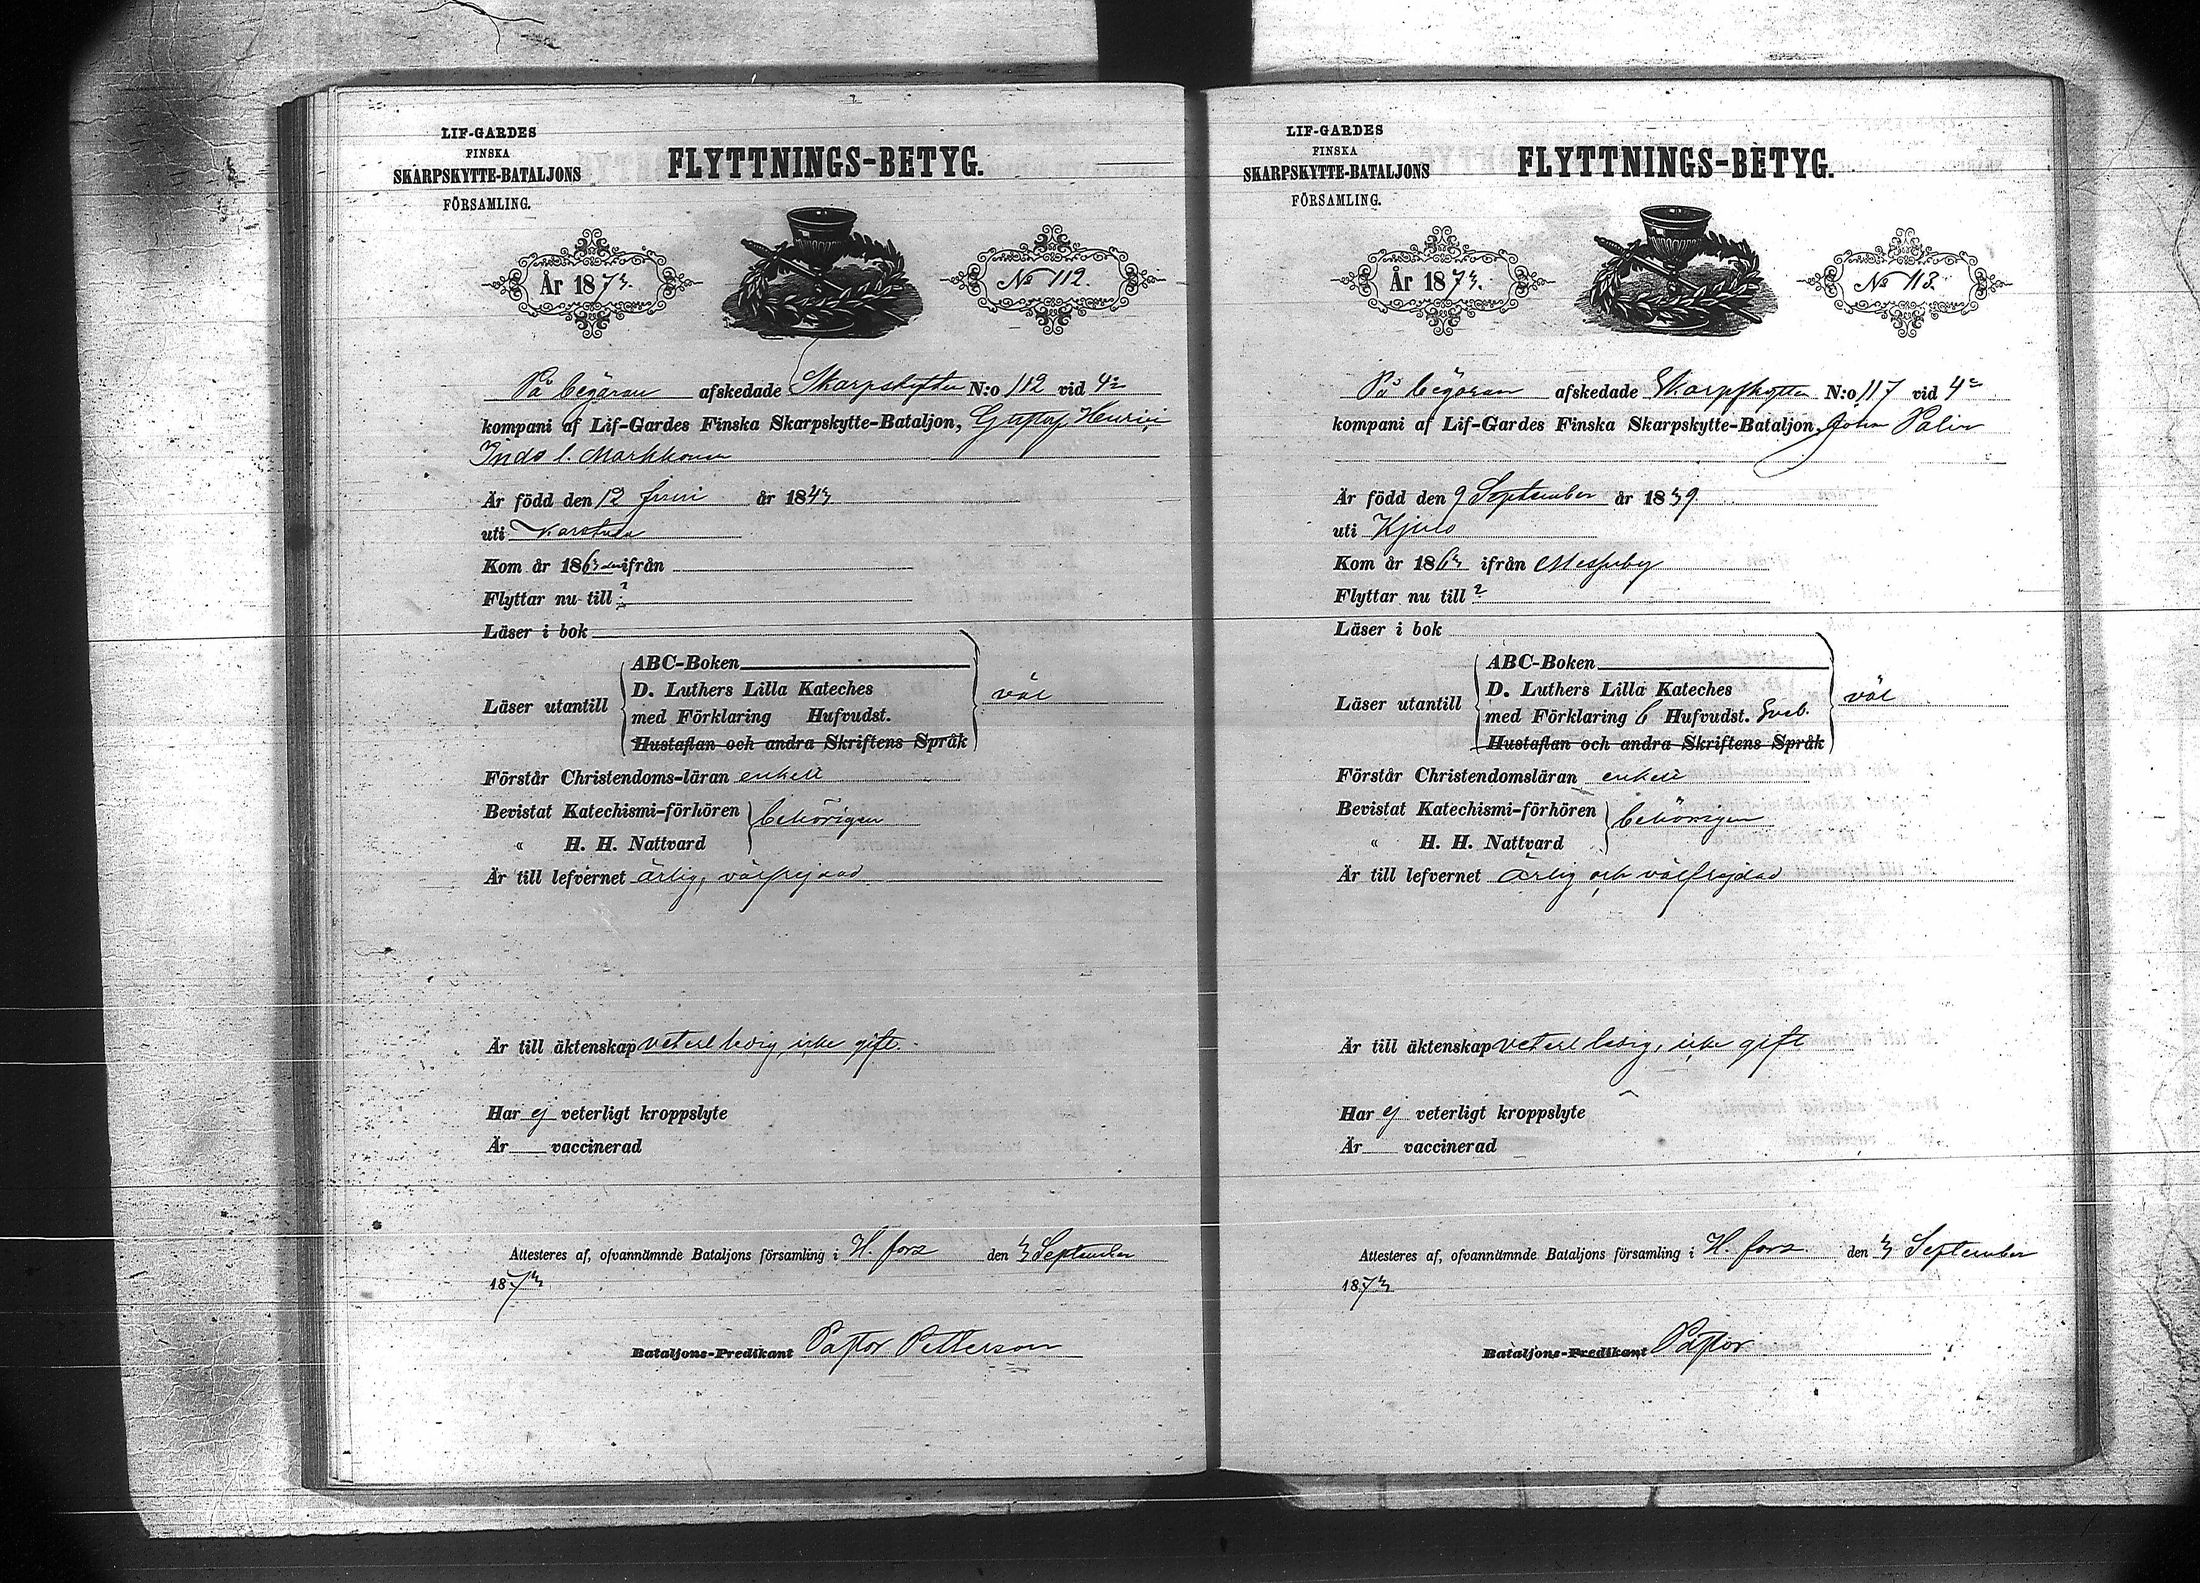 LIF-GARDES
FINSKA
SKARPSKYTTE-BATALJONS
FÖRSAMLING.
FLYTTNINGS-BETYG.
År 1873.
No 112.
På begäran afskedade Skarpskytten N:o 112 vid 4de
kompani af Lif-Gardes Finska Skarpskytte-Bataljon, Gustaf Henric
Inds l. Markkonen
Är född den 12 Juni år 1843
uti Karstula
Kom år 1863 ifrån
Flyttar nu till ?
Läser i bok
Läser utantill
ABC-Boken
D. Luthers Lilla Kateches
med Förklaring Hufvudst.
Hustaflan och andra Skriftens Språk
väl
Förstår Christendoms-läran enkelt
Bevistat Katechismi-förhören
« H. H. Nattvard
behörigen
Är till lefvernet ärlig, välfrejdad
Är till äktenskap veterl. ledig, icke gift.
Har ej veterligt kroppslyte
Är vaccinerad
Attesteras af, ofvannämnde Bataljons församling i H. fors den 3 September
1873
Bataljons-Predikant Pastor Petterson
LIF-GARDES
FINSKA
SKARPSKYTTE-BATALJONS
FÖRSAMLING.
FLYTTNINGS-BETYG.
År 1873.
No 113.
På begäran afskedade Skarpskytten N:o 117 vid 4de
kompani af Lif-Gardes Finska Skarpskytte-Bataljon, Johan Palin
Är född den 9 September år 1839
uti Kjulo
Kom år 1863 ifrån Messuby
Flyttar nu till ?
Läser i bok
Läser utantill
ABC-Boken
D. Luthers Lilla Kateches
med Förklaring 6 Hufvudst. Sveb.
Hustaflan och andra Skriftens Språk
väl
Förstår Christendomsläran enkelt
Bevistat Katechismi-förhören
« H. H. Nattvard
behörigen
Är till lefvernet ärlig och välfrejdad
Är till äktenskap veterl. ledig, icke gift
Har ej veterligt kroppslyte
Är vaccinerad
Attesteras af, ofvannämnde Bataljons församling i H. fors. den 3 September
1873
Bataljons-Predikant Pastor